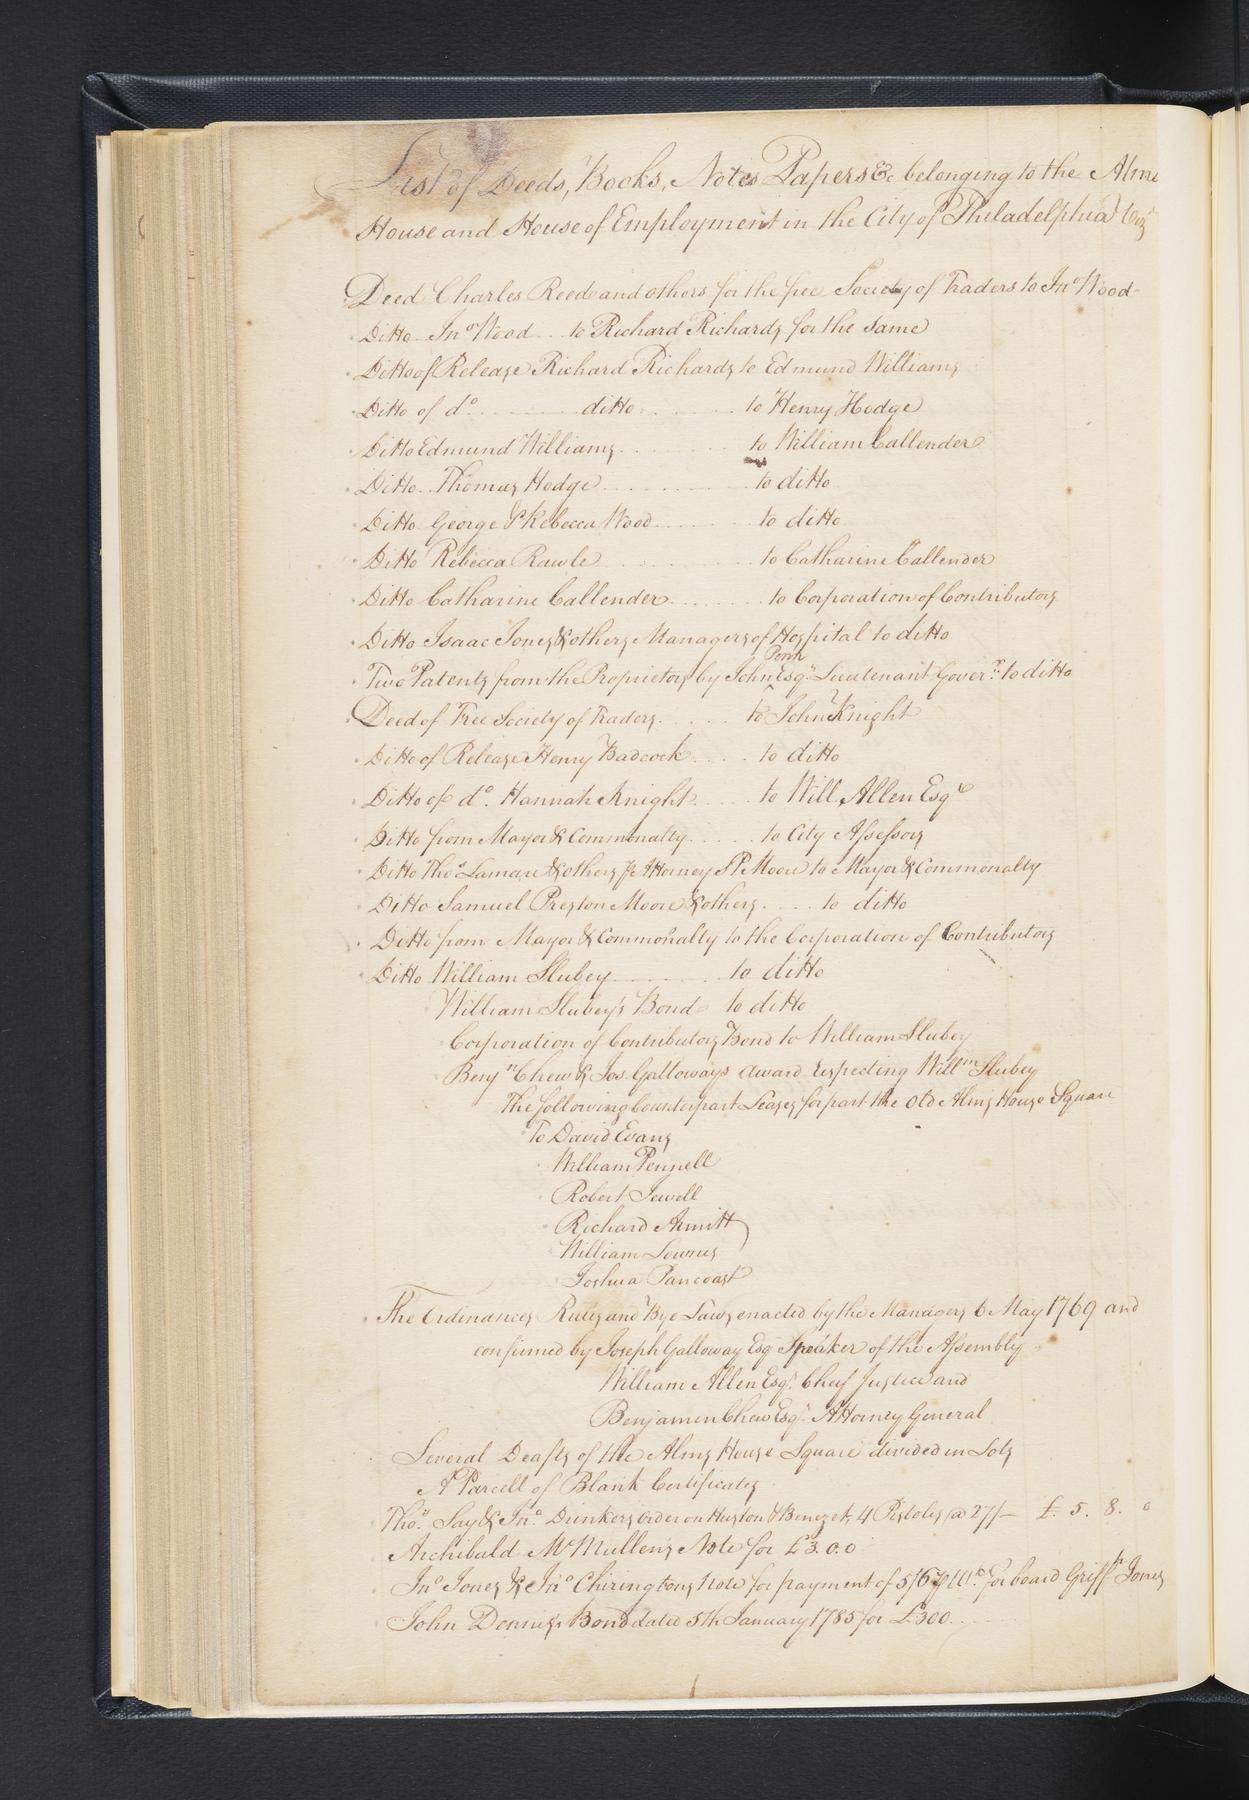 List of Deeds, Books, Notes Papers &c belonging to the Alms
House and House of Employment in the City of Philadelphia Vizt
Deed Charles Reed and others for the free Society of Traders to Jno Wood
Ditto Jno Wood to Richard Richards for the same
Ditto of Release Richard Richards to Edmund Williams
Ditto of do ditto to Henry Hodge
Ditto Edmund Williams to William Callender
Ditto Thomas Hodge to ditto
Ditto George & Rebecca Wood to ditto
Ditto Rebecca Rawle to Catharine Callender
Ditto Catharine Callender to Corporation of Contributors
Ditto Isaac Jones & others Managers of Hospital to ditto
Two Patents from the Proprietors by John Penn Esqr Lieutenant Goverr to ditto
Deed of Free Society of Traders to John Knight
Ditto of Release Henry Badcock to ditto
Ditto of do. Hannah Knight to Will. Allen Esqr
Ditto from Mayor & Commonalty to City Assessors
Ditto Thos Lamare & others per Attorney SP Moore to Mayor & Commonalty
Ditto Samuel Preston Moore & others to ditto
Ditto from Mayor & Commonalty to the Corporation of Contributors
Ditto William Slubey to ditto
William Slubey's Bond to ditto
Corporation of Contributors Bond to William Slubey
Benjn Chew & Jos. Galloways award respecting Willm Slubey
The following Counterpart Leases for part the Old Alms House Square
To David Evans
William Pennell
Robert Jewell
Richard Armitt
William Lownes
Joshua Pancoast
The Ordinances Rules and Bye Laws enacted by the Managers 6 May 1769 and
confirmed by Joseph Galloway Esqr Speaker of the Assembly
William Allen Esqr. Chief Justice and
Benjamen Chew Esqr. Attorney General
Several Drafts of the Alms House Square divided in Lots
A Parcell of Blank Certificates
Thos. Say & Jno. Drinkers order on Huston & Benezet, 4 Pistoles @ 27/– £. 5. 8. 0
Archibald McMullens Note for £3.0.0
Jno Jones & Jno Chiringtons Note for payment of 5/6 per Wk. for board Griffh Jones
John Dennis's Bond dated 5th January 1785 for £300.